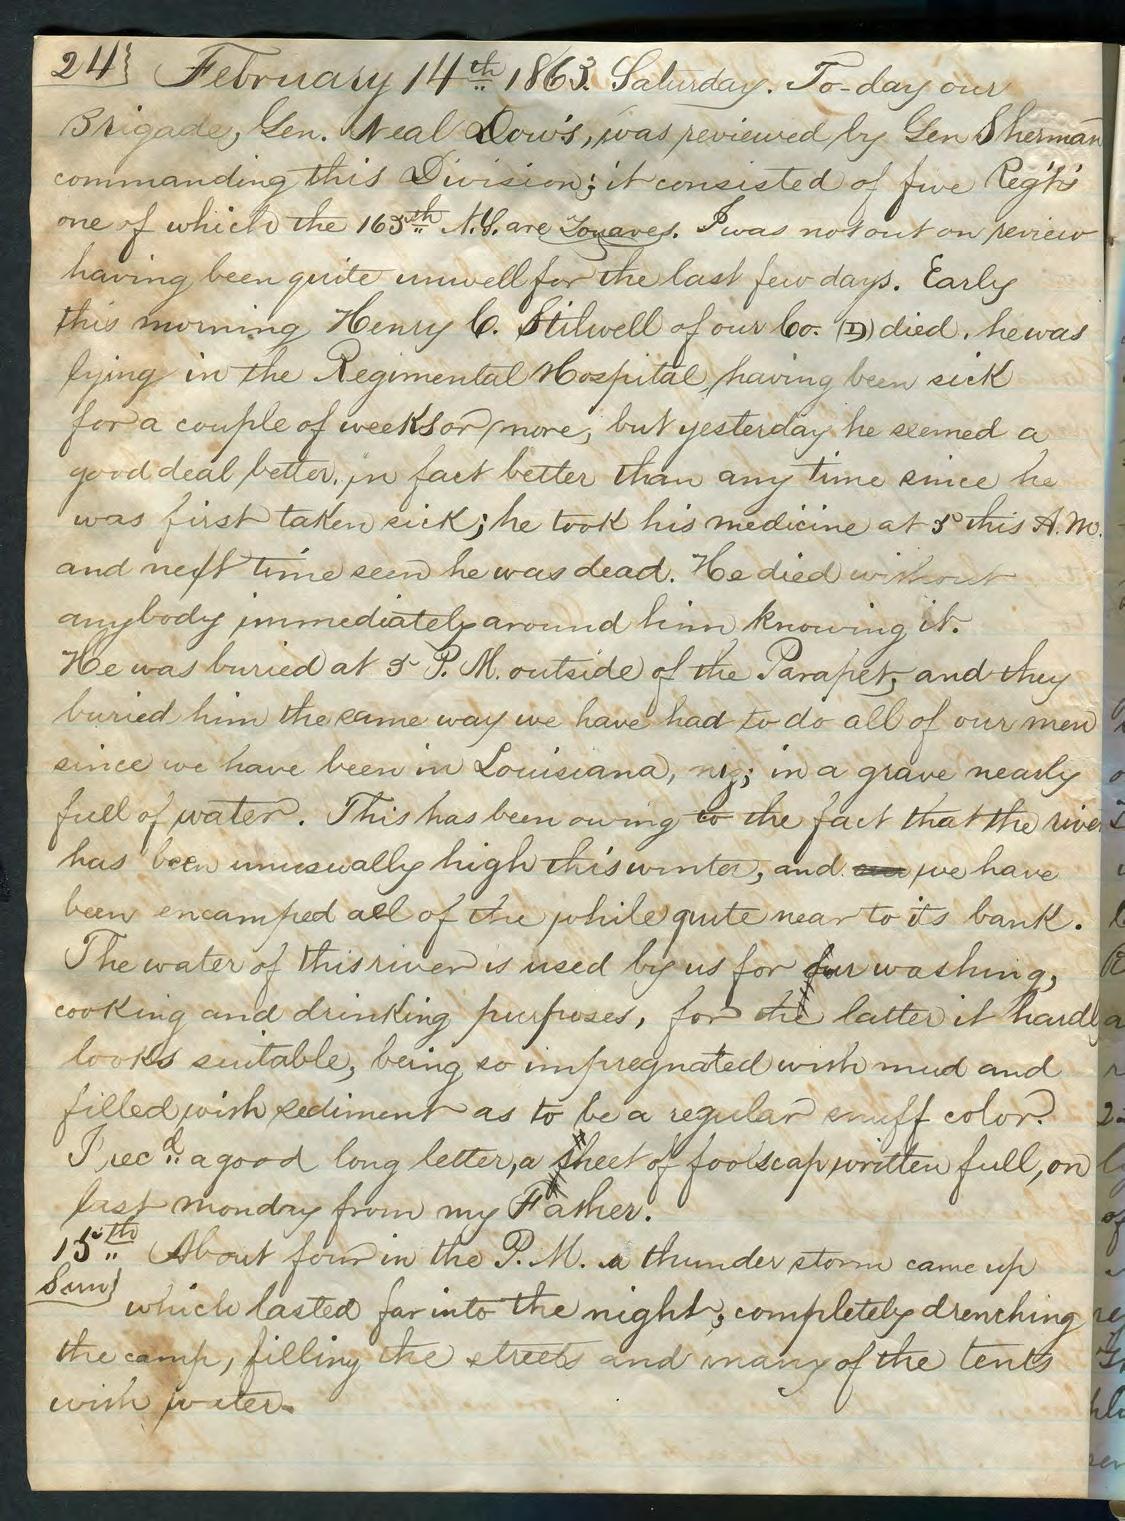 24} February 14th 1863. Saturday. To-day our
Brigade, Gen. Neal Dow's, was reviewed by Gen Sherman
commanding this Division; it consisted of five Reg'ts
one of which the 165th N.Y. are Zouaves. I was not out on review
having been quite unwell for the last few days. Early
this morning Henry C. Stilwell of our Co. (D) died. he was
lying in the Regimental Hospital, having been sick
for a couple of weeks or more, but yesterday he seemed a
good deal better, in fact better than any time since he
was first taken sick; he took his medicine at 5 this A.M.
and next time seen he was dead. He died without
anybody immediately around him knowing it.
He was buried at 5 P.M. outside of the Parapet, and they
buried him the same way we have had to do all of our men
since we have been in Louisiana, viz; in a grave nearly
full of water. This has been owing to the fact that the river
has been unusually high this winter, and we have
been encamped all of the while quite near to its bank.
The water of this river is used by us for our washing,
cooking and drinking purposes, for the latter it hardly
looks suitable, being so impregnated with mud and
filled with sediment as to be a regular snuff color.
I rec'd a good long letter, a sheet of foolscap written full, on
last monday from my Father.
15th About four in the P.M. a thunder storm came up
Sun} which lasted far into the night; completely drenching
the camp, filling the streets and many of the tents
with water.